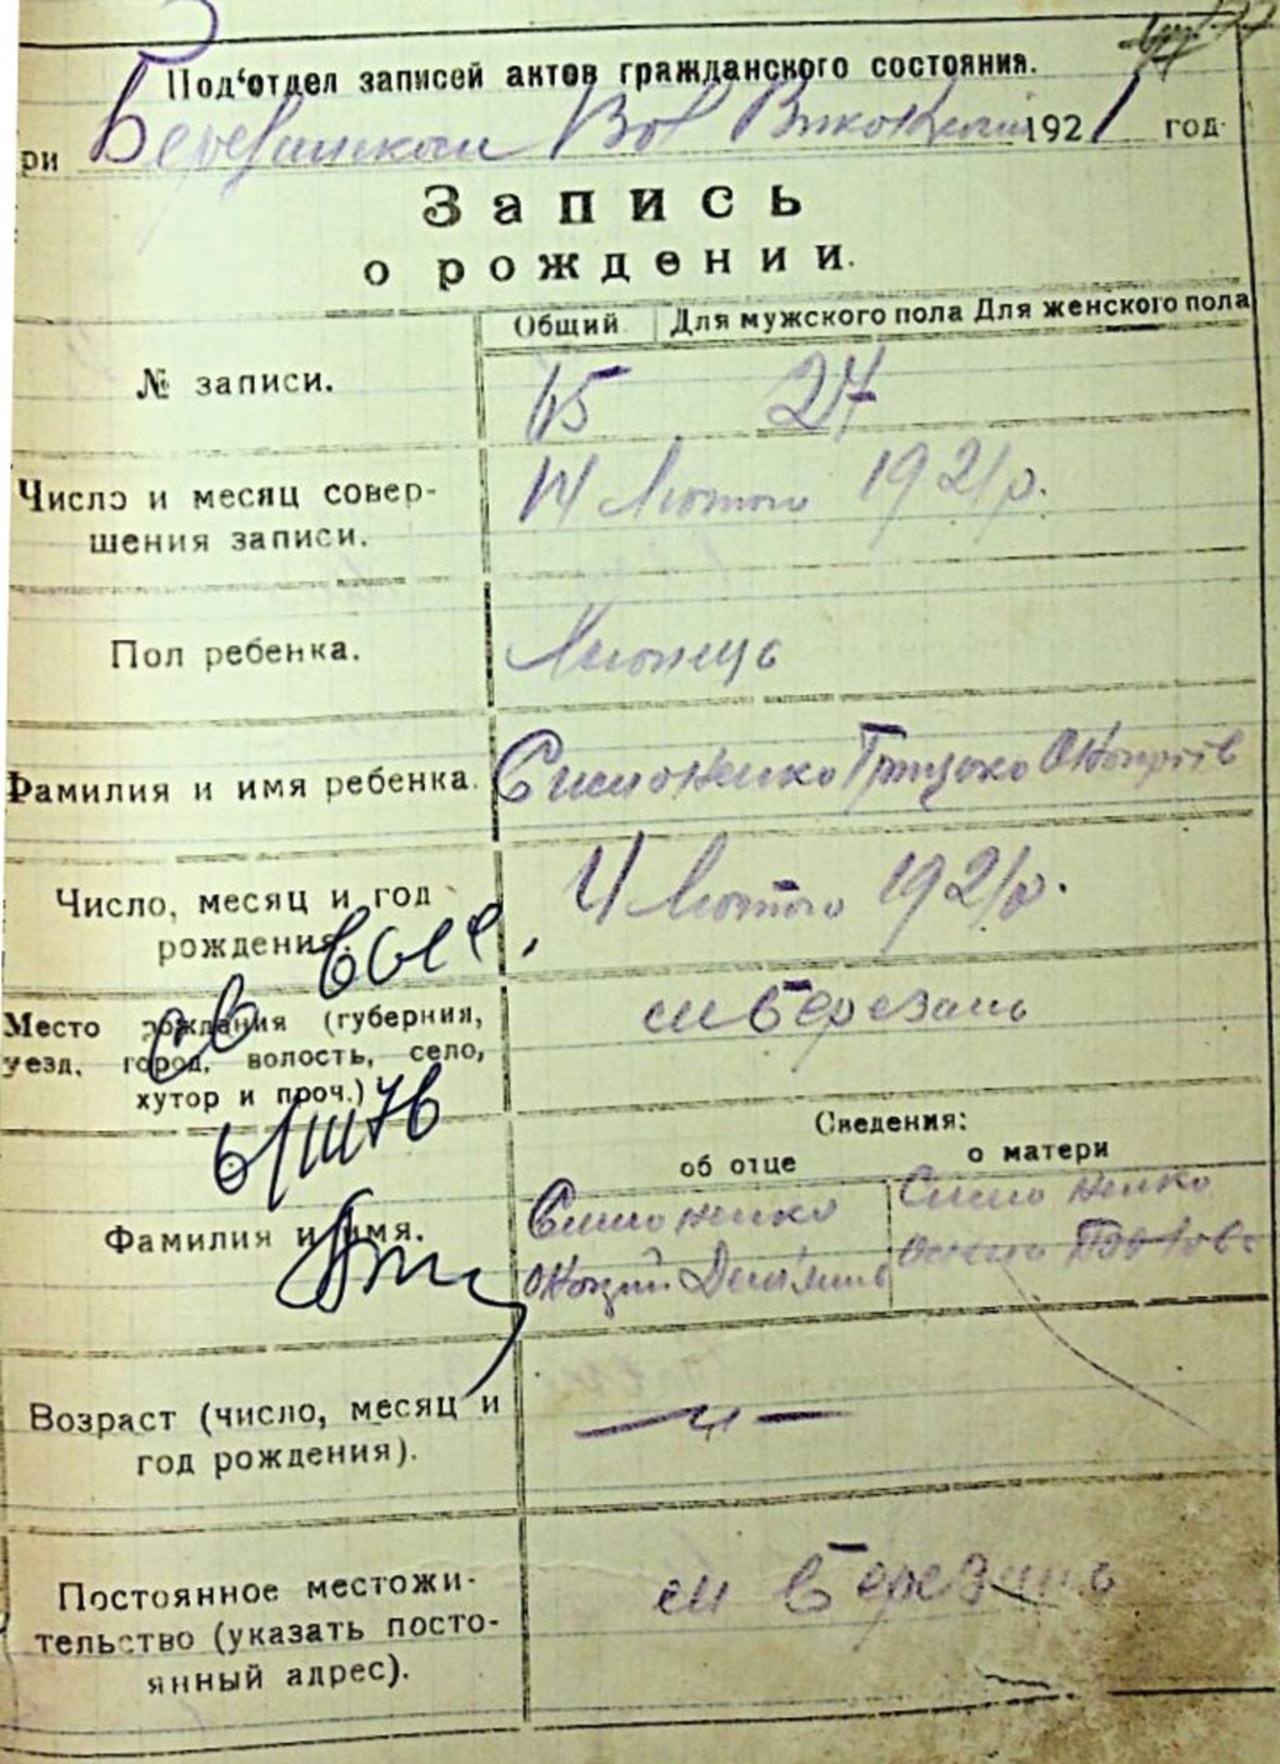 Под‘отдел записей актов гражданского состояния.
ри Березанском Вол Виконкомі 1921 год
Запись
о рождении.
Общий Для мужского пола Для женского пола
№ записи. 65 27
Число и месяц совершения записи. 14 Лютого 1921 р.
Пол ребенка. Хлопець
Фамилия и имя ребенка. Симоненко Грицько
Число, месяц и год рождения. 4 Лютого 1921 р.
Место рождения (губерния, уезд, город, волость, село, хутор и проч.) см Березань
6/III 76
Сведения:
об отце о матери
Фамилия и имя. Симоненко Симоненко
Возраст (число, месяц и год рождения). — „ —
Постоянное местожительство (указать постоянный адрес). см Березань